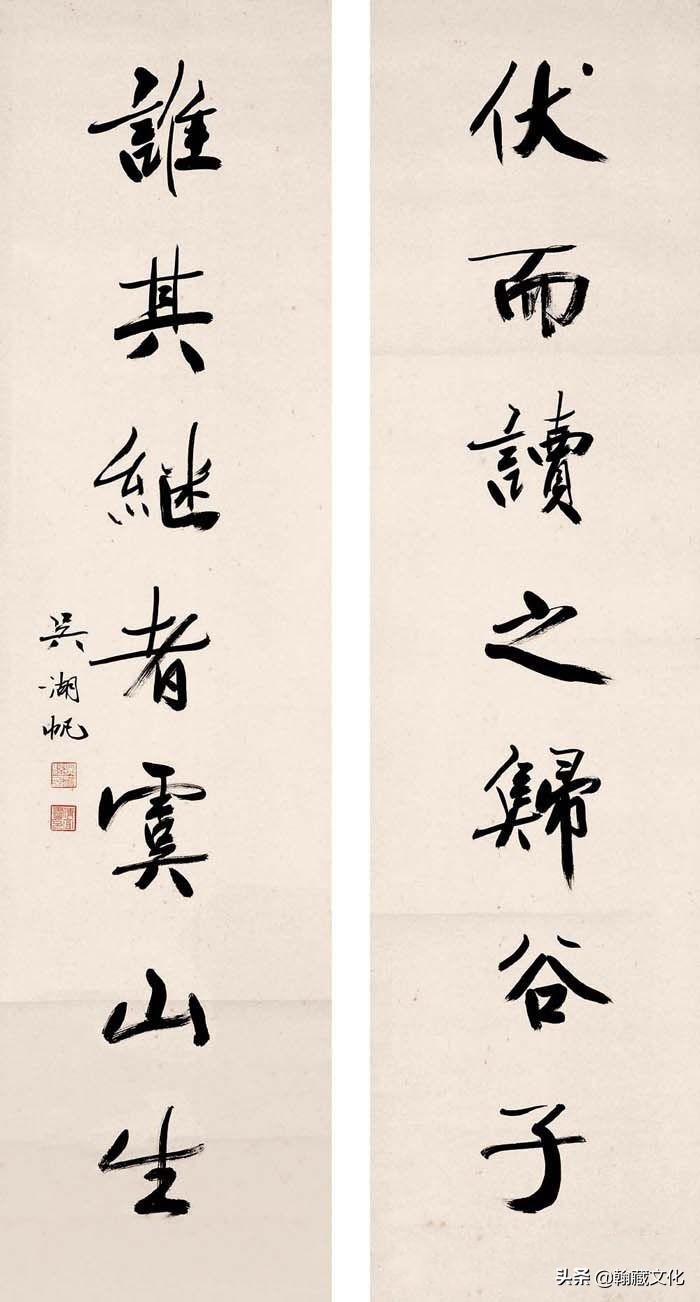 伏而讀之歸谷子
誰其継者虞山生
吳湖帆
头条 @翰藏文化